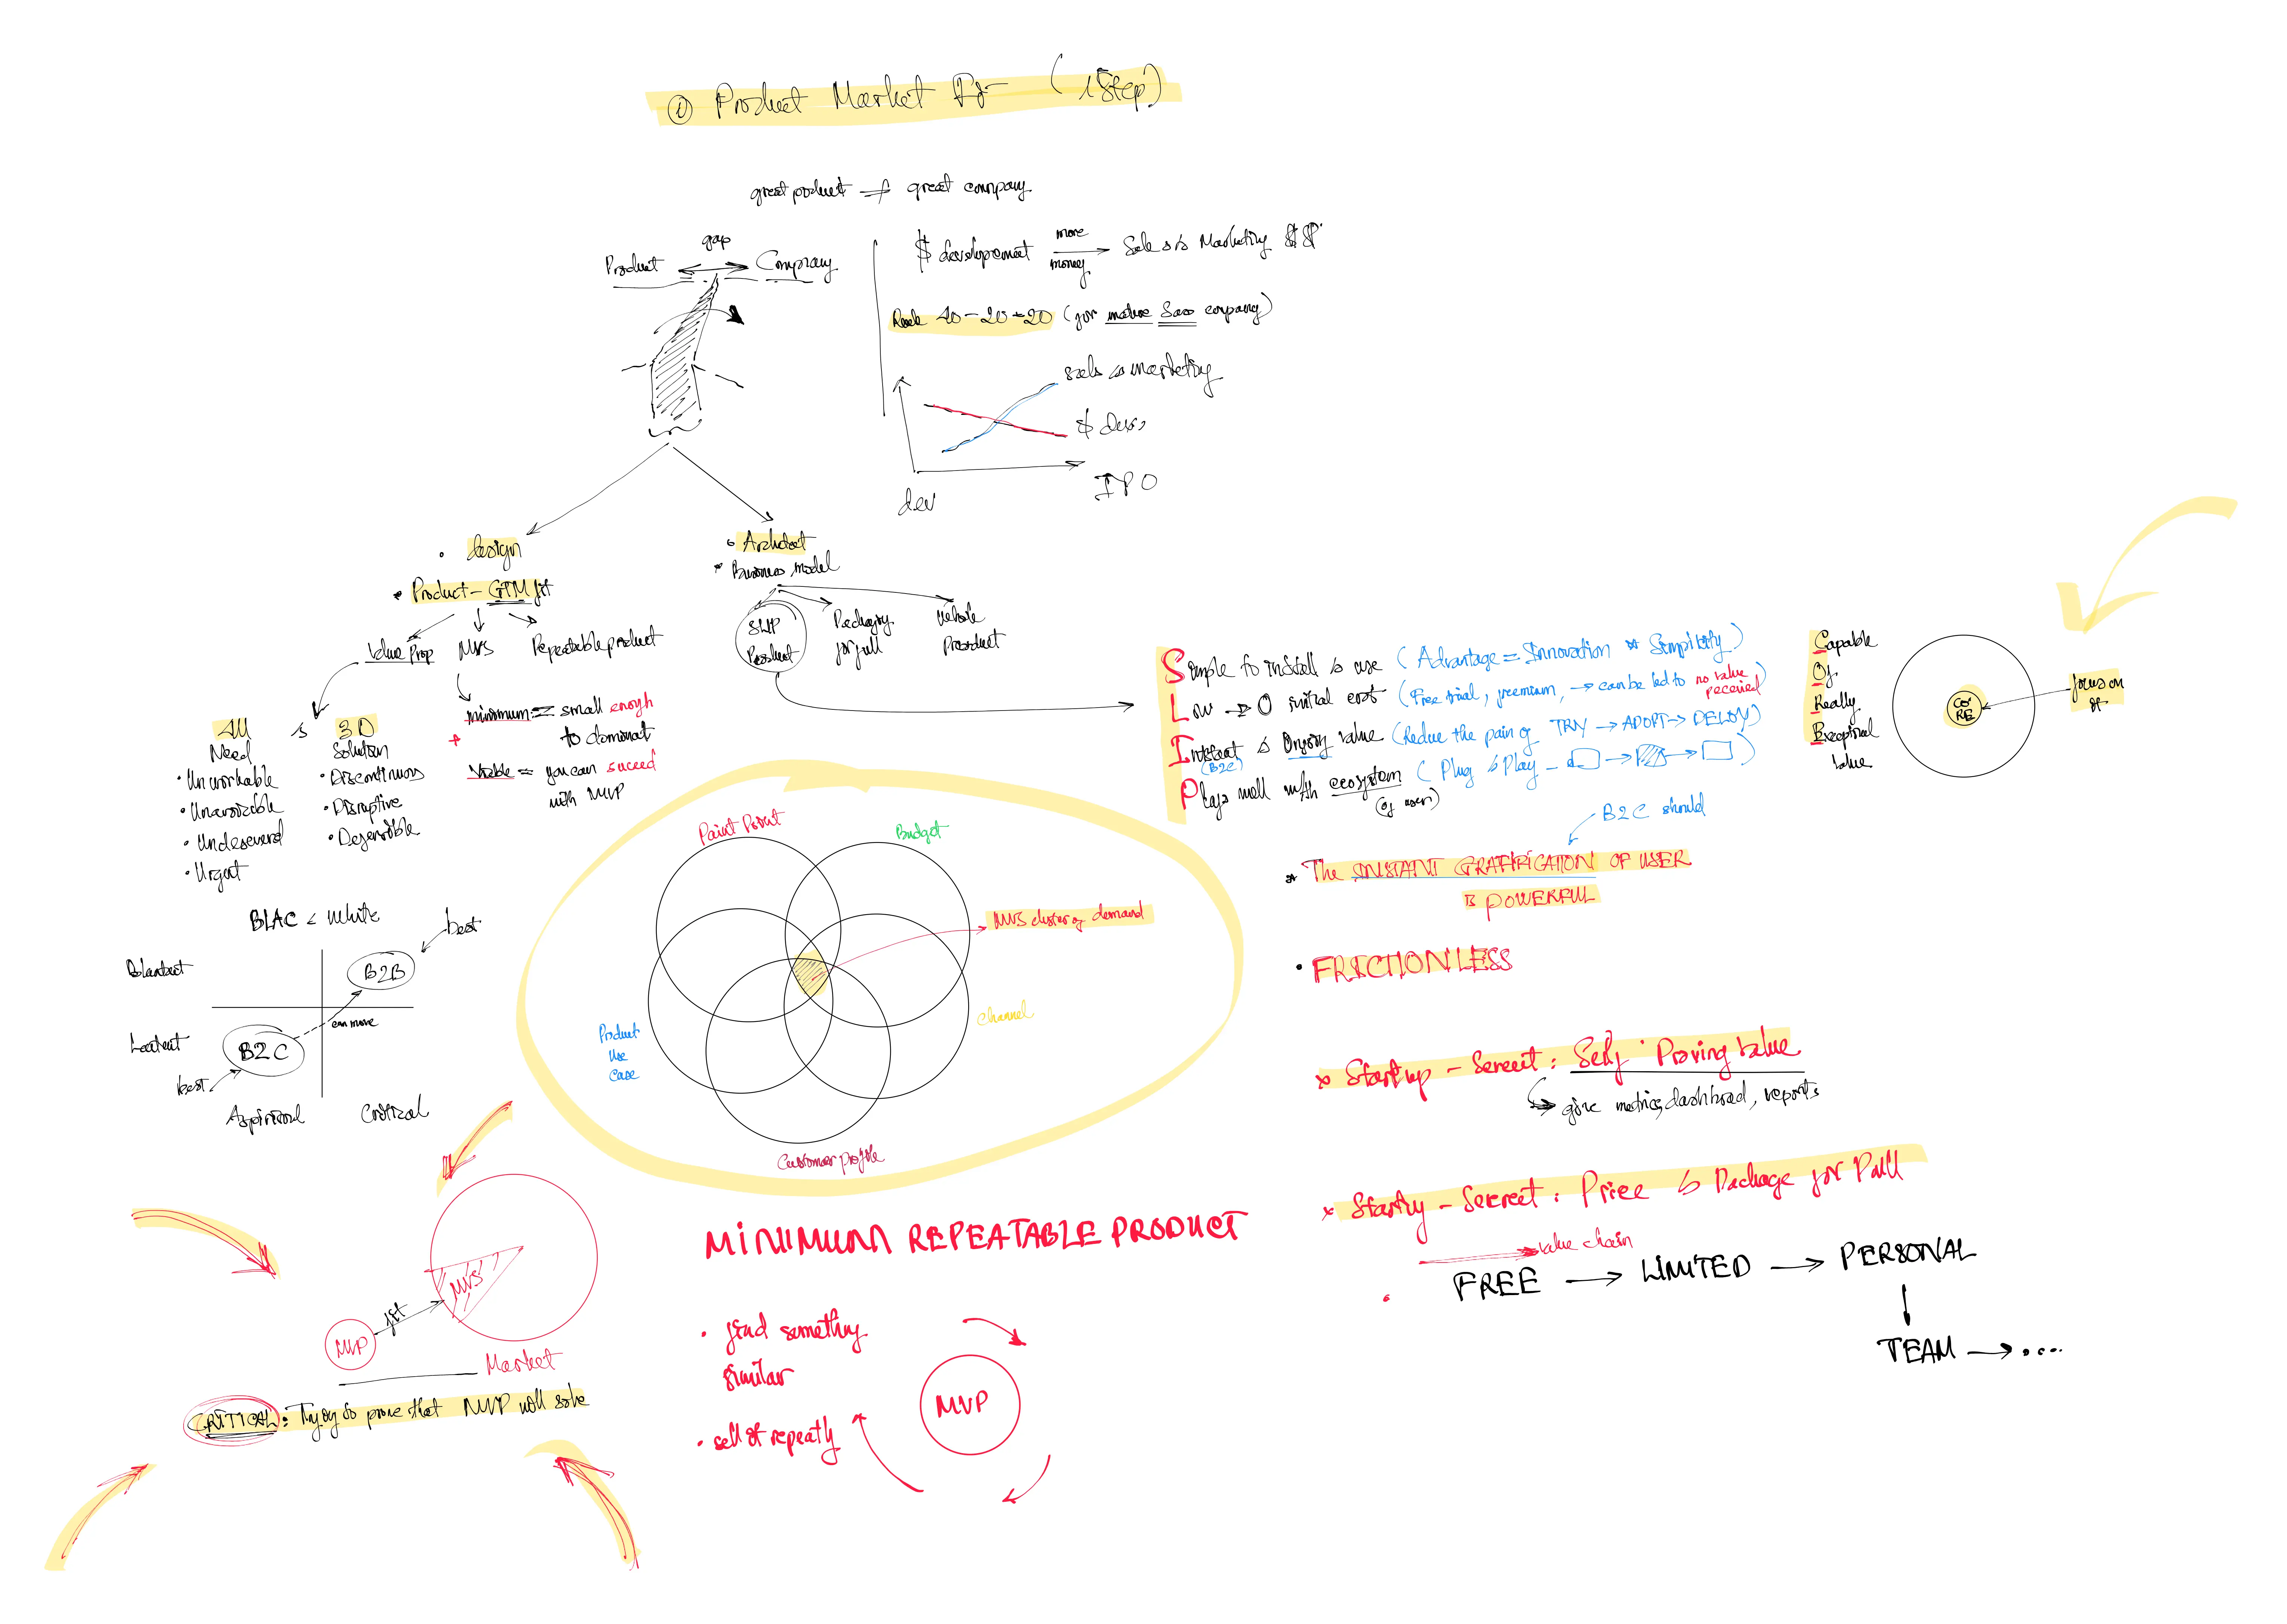 ① Product Market Fit (1 Step)
great product ≠ great company
gap
Product ⟷ Company
$ development more money → Sales & Marketing $$
Rule 40-20-20 (for mature SaaS company)
sales & marketing
$ dev
dev
IPO
• design
• Product - GTM fit
Value Prop
MVS
Repeatable product
• Architect
• Business model
SLIP Product
Packaging for pull
Whole Product
4U & 3D
Need
• Unworkable
• Unavoidable
• Underserved
• Urgent
Solution
• Discontinuous
• Disruptive
• Defensible
minimum = small enough
to dominat
+
Viable = you can succed
with MVP
BLAC & White
best
Blantant
B2B
Latent
can move
B2C
best
Aspirional
Critical
Paint Point
Budget
MVS cluster of demand
Channel
Product
Use
Case
Customer profile
Simple to install & use (Advantage = Innovation * Simplicity)
Low → 0 initial cost (Free trial, freemium, → can be led to no value perceived)
Instant & Ongoing value (Reduce the pain of TRY → ADOPT → DEPLOY)
(B2C)
Plays well with ecosystem (Plug & Play - → → )
(of user)
B2C should
* The INSTANT GRATIFICATION OF USER
is POWERFUL
• FRICTIONLESS
* Startup - Secret: Self - Proving Value
↳ give metrics, dashboad, reports
* Startup - Secret: Price & Package for Pull
value chain
FREE → LIMITED → PERSONAL
↓
TEAM → ....
Capable
Of
Really
Exceptional
Value
CORE
focus on
it
MVS
fit
MVP
Market
CRITICAL: Trying to prove that MVP will solve
MINIMUMN REPEATABLE PRODUCT
• find something
similar
• sell it repeatly
MVP